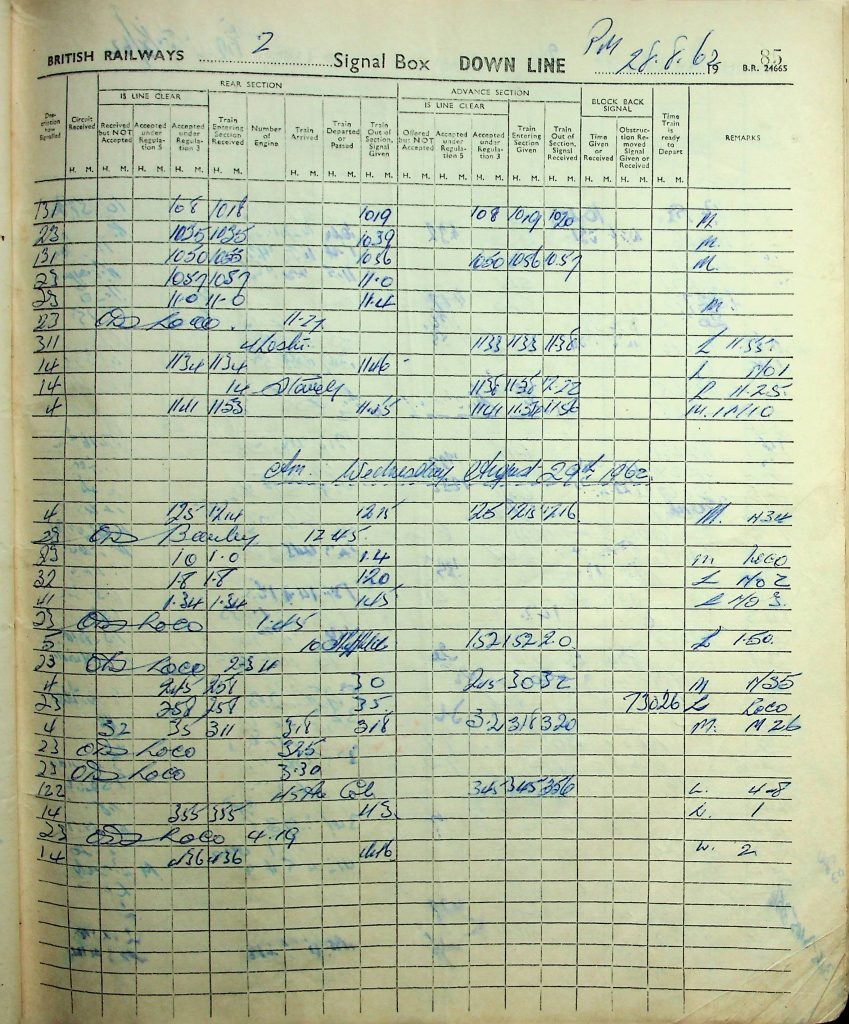 BRITISH RAILWAYS 2 Signal Box DOWN LINE PM 28.8.62 19 B.R. 24665 85
REAR SECTION ADVANCE SECTION
IS LINE CLEAR IS LINE CLEAR BLOCK BACK SIGNAL
Description how Signalled Circuit Received Received but NOT Accepted Accepted under Regulation 5 Accepted under Regulation 3 Train Entering Section Received Number of Engine Train Arrived Train Departed or Passed Train Out of Section, Signal Given Offered but NOT Accepted Accepted under Regulation 5 Accepted under Regulation 3 Train Entering Section Given Train Out of Section, Signal Received Time Given or Received Obstruction Removed Signal Given or Received Time Train is ready to Depart REMARKS
H. M. H. M. H. M. H. M. H. M. H. M. H. M. H. M. H. M. H. M. H. M. H. M. H. M. H. M. H. M. H. M.
131 108 1018 1019 108 1019 1020 M.
23 1035 1035 1039 M.
131 1050 1055 1056 1050 1056 1057 M.
23 1057 1057 11.0
23 11.0 11.0 11.4 M.
23 Loco. 11.27
311 1133 1133 1138 L
14 1134 1134 1146 L No 1
14 14 L 11.25
4 1141 1153 1155 1141 1156 M.
Am. Wednesday August 29th 1962.
4 125 1214 1215 1216 M. N34
23 12.45.
23 10 1.0 1.4 m Loco
32 1.8 1.8 120 L No 2
41 1.34 1.34 145 L No 3.
23 Loco 1.45
5 152 152 2.0 L 1.50.
23 Loco 2.34
4 245 258 30 245 30 32 M N35
23 258 258 35. 73026 L Loco
4 32 35 311 318 318 32 318 320 M. M26
23 Loco 325
23 Loco 3.30
122 345 345 356 L. 4-8
14 355 355 43. L. 1
23 Loco 4.19
14 436 436 446 L. 2